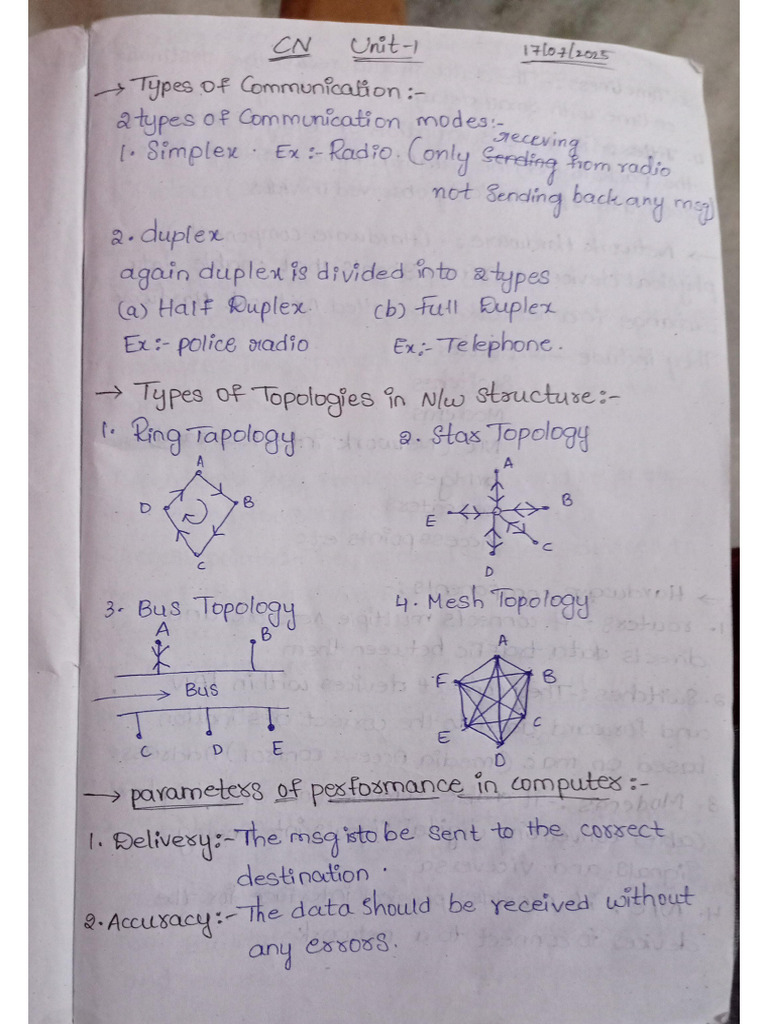 CN Unit-1 17/07/2025
→ Types of Communication:-
2 types of Communication modes:-
receving
1. Simplex. Ex:- Radio. (only Sending from radio
not sending back any msg)
2. duplex
again duplex is divided into 2 types
(a) Half Duplex. (b) Full Duplex
Ex:- police radio Ex:- Telephone.
→ Types of Topologies in N/w structure:-
1. Ring Tapology 2. Star Topology
A
D B
C
A
E B
C
D
3. Bus Topology 4. Mesh Topology
A B
Bus
C D E
A
F B
E C
D
→ parameters of performance in computer:-
1. Delivery:- The msg is to be sent to the correct
destination.
2. Accuracy:- The data should be received without
any errors.